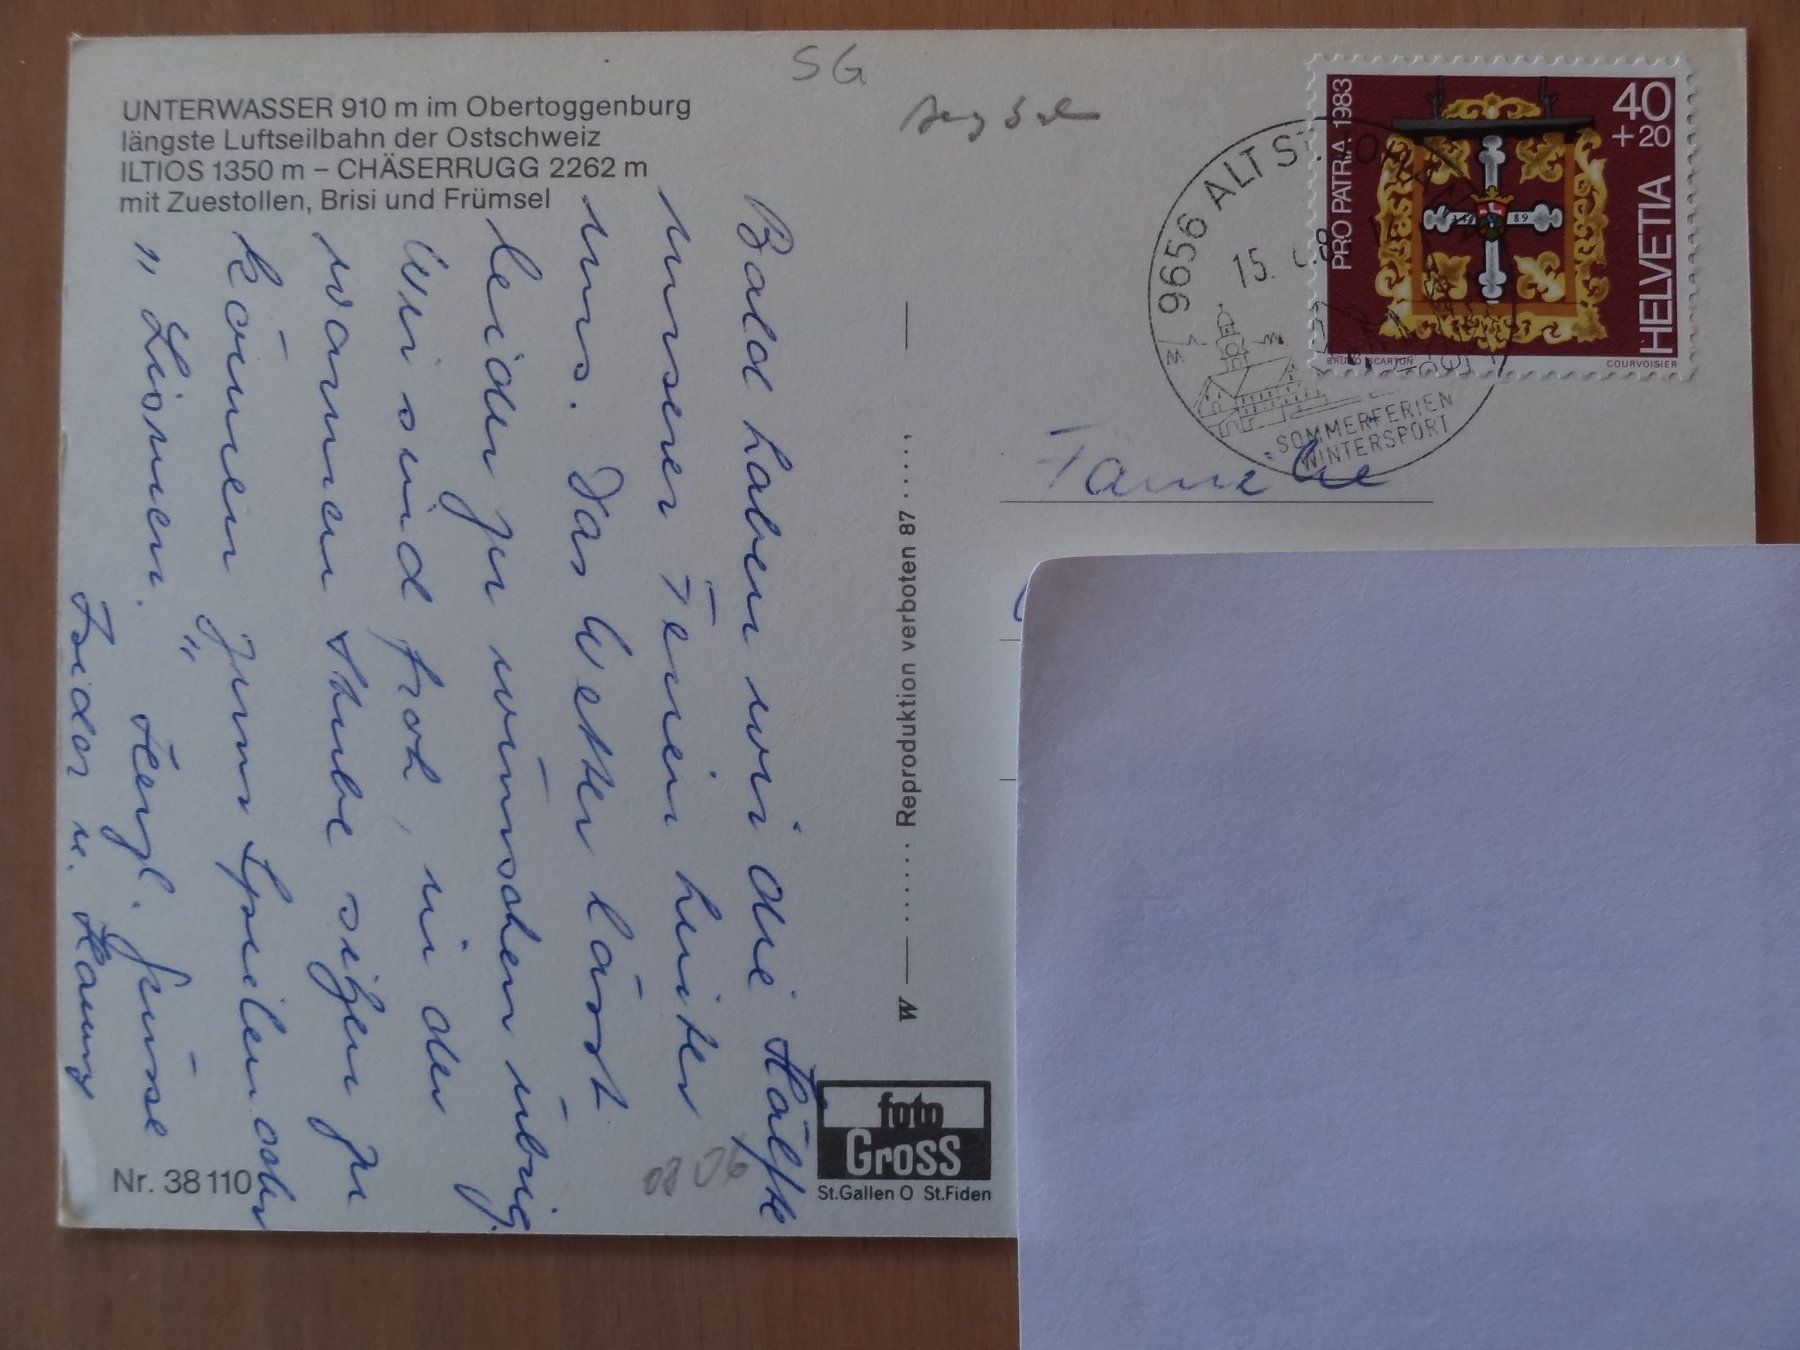 UNTERWASSER 910 m im Obertoggenburg
längste Luftseilbahn der Ostschweiz
ILTIOS 1350 m – CHÄSERRUGG 2262 m
mit Zuestollen, Brisi und Frümsel
SG
Bald haben wir die Hälfte
unserer Ferien hinter
uns. Das Wetter lässt
leider zu wünschen übrig.
Wir sind froh, in der
warmen Stube sitzen zu
können zum Spielen oder
"Lismen."
Herzl. Grüsse
Fridor u. Hanny
Nr. 38110
W — ....... Reproduktion verboten 87 ...... —
foto
Gross
St.Gallen O St.Fiden
9656 ALT ST.
15.
SOMMERFERIEN
WINTERSPORT
PRO PATRIA 1983
40
+20
HELVETIA
89
BRUNO SCARTON
COURVOISIER
Familie